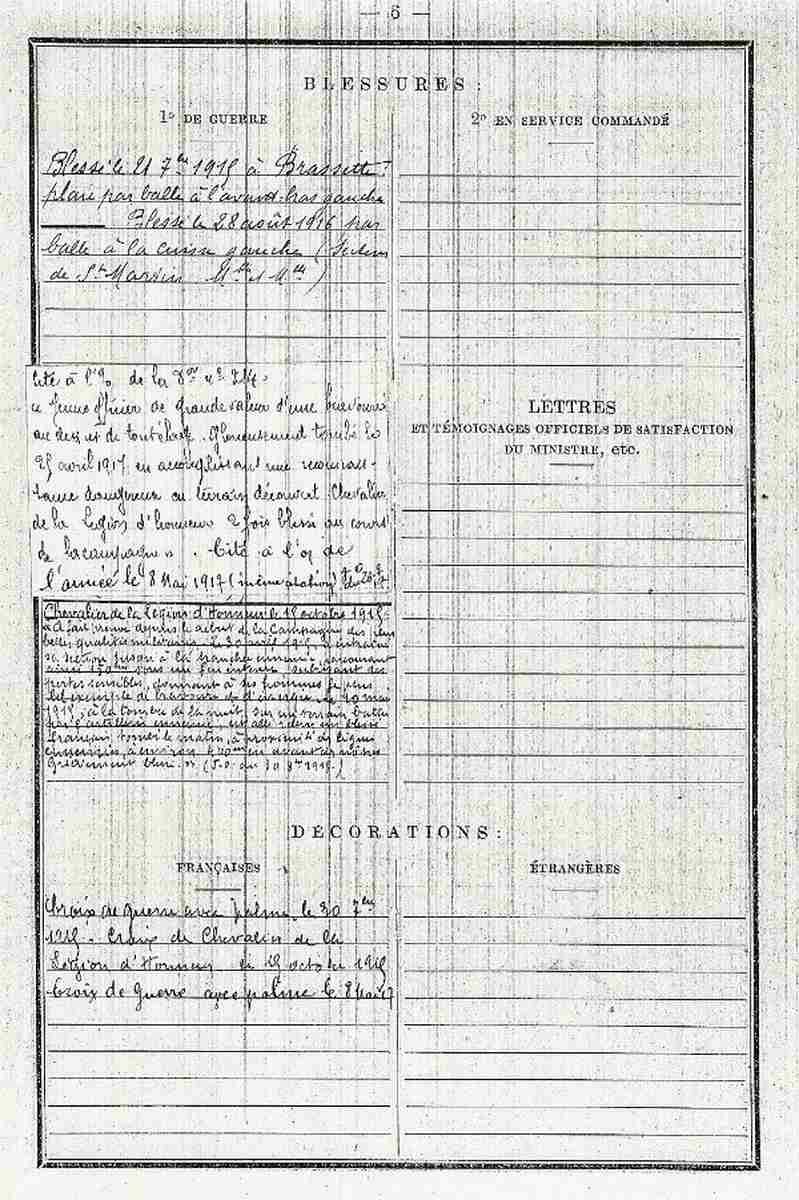 — 6 —
BLESSURES :
1º DE GUERRE
2º EN SERVICE COMMANDÉ
Blessé le 21 7bre 1915 à
plaie par balle à l'avant-bras gauche
Blessé le 28 août 1916 par
balle à la cuisse gauche (
de St Martin
Cité à l'O% de la Don nº
" Jeune officier de grande valeur d'une bravoure
au dessus de tout éloge. Glorieusement tombé le
25 avril 1917 en accomplissant une reconnais-
sance dangereuse en terrain découvert. Chevalier
de la Légion d'honneur 2 fois blessé au cours
de la campagne ". Cité à l'O% de
l'armée le 8 Mai 1917 (même citation)
LETTRES
ET TÉMOIGNAGES OFFICIELS DE SATISFACTION
DU MINISTRE, etc.
Chevalier de la Légion d'Honneur le 15 octobre 1915
" A fait preuve depuis le début de la Campagne des plus
belles qualités militaires. Le 30 avril 1915 a entraîné
sa section jusqu'à la tranchée ennemie, parcourant
sous un feu intense, subissant des
pertes sensibles, donnant à ses hommes le plus
bel exemple de bravoure et d'énergie. Le 10 mai
1915, à la tombée de la nuit, sur un terrain battu
par l'artillerie ennemie, est allé un blessé
français, tombé le matin, à proximité des lignes
ennemies, à environ 400m en avant des nôtres
Grièvement blessé. " (J.O. du 30 8bre 1915.)
DÉCORATIONS :
FRANÇAISES
ÉTRANGÈRES
Croix de guerre avec palme le 30 7bre
1915. Croix de Chevalier de la
Légion d'Honneur le 15 octobre 1915
Croix de Guerre avec palme le 8 Mai 17